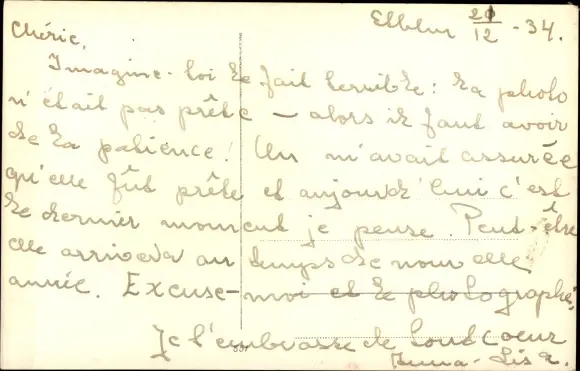 21/12 - 34.
Chérie,
Imagine-toi le fait terrible: la photo
n'était pas prête - alors il faut avoir
de la patience! On m'avait assurée
qu'elle fût prête et aujourd'hui c'est
le dernier moment je pense. Peut-être
elle arrivera au temps de nouvelle
année. Excuse-moi et le photographe,
Je t'embrasse de tout coeur
Anna-Lisa.
331